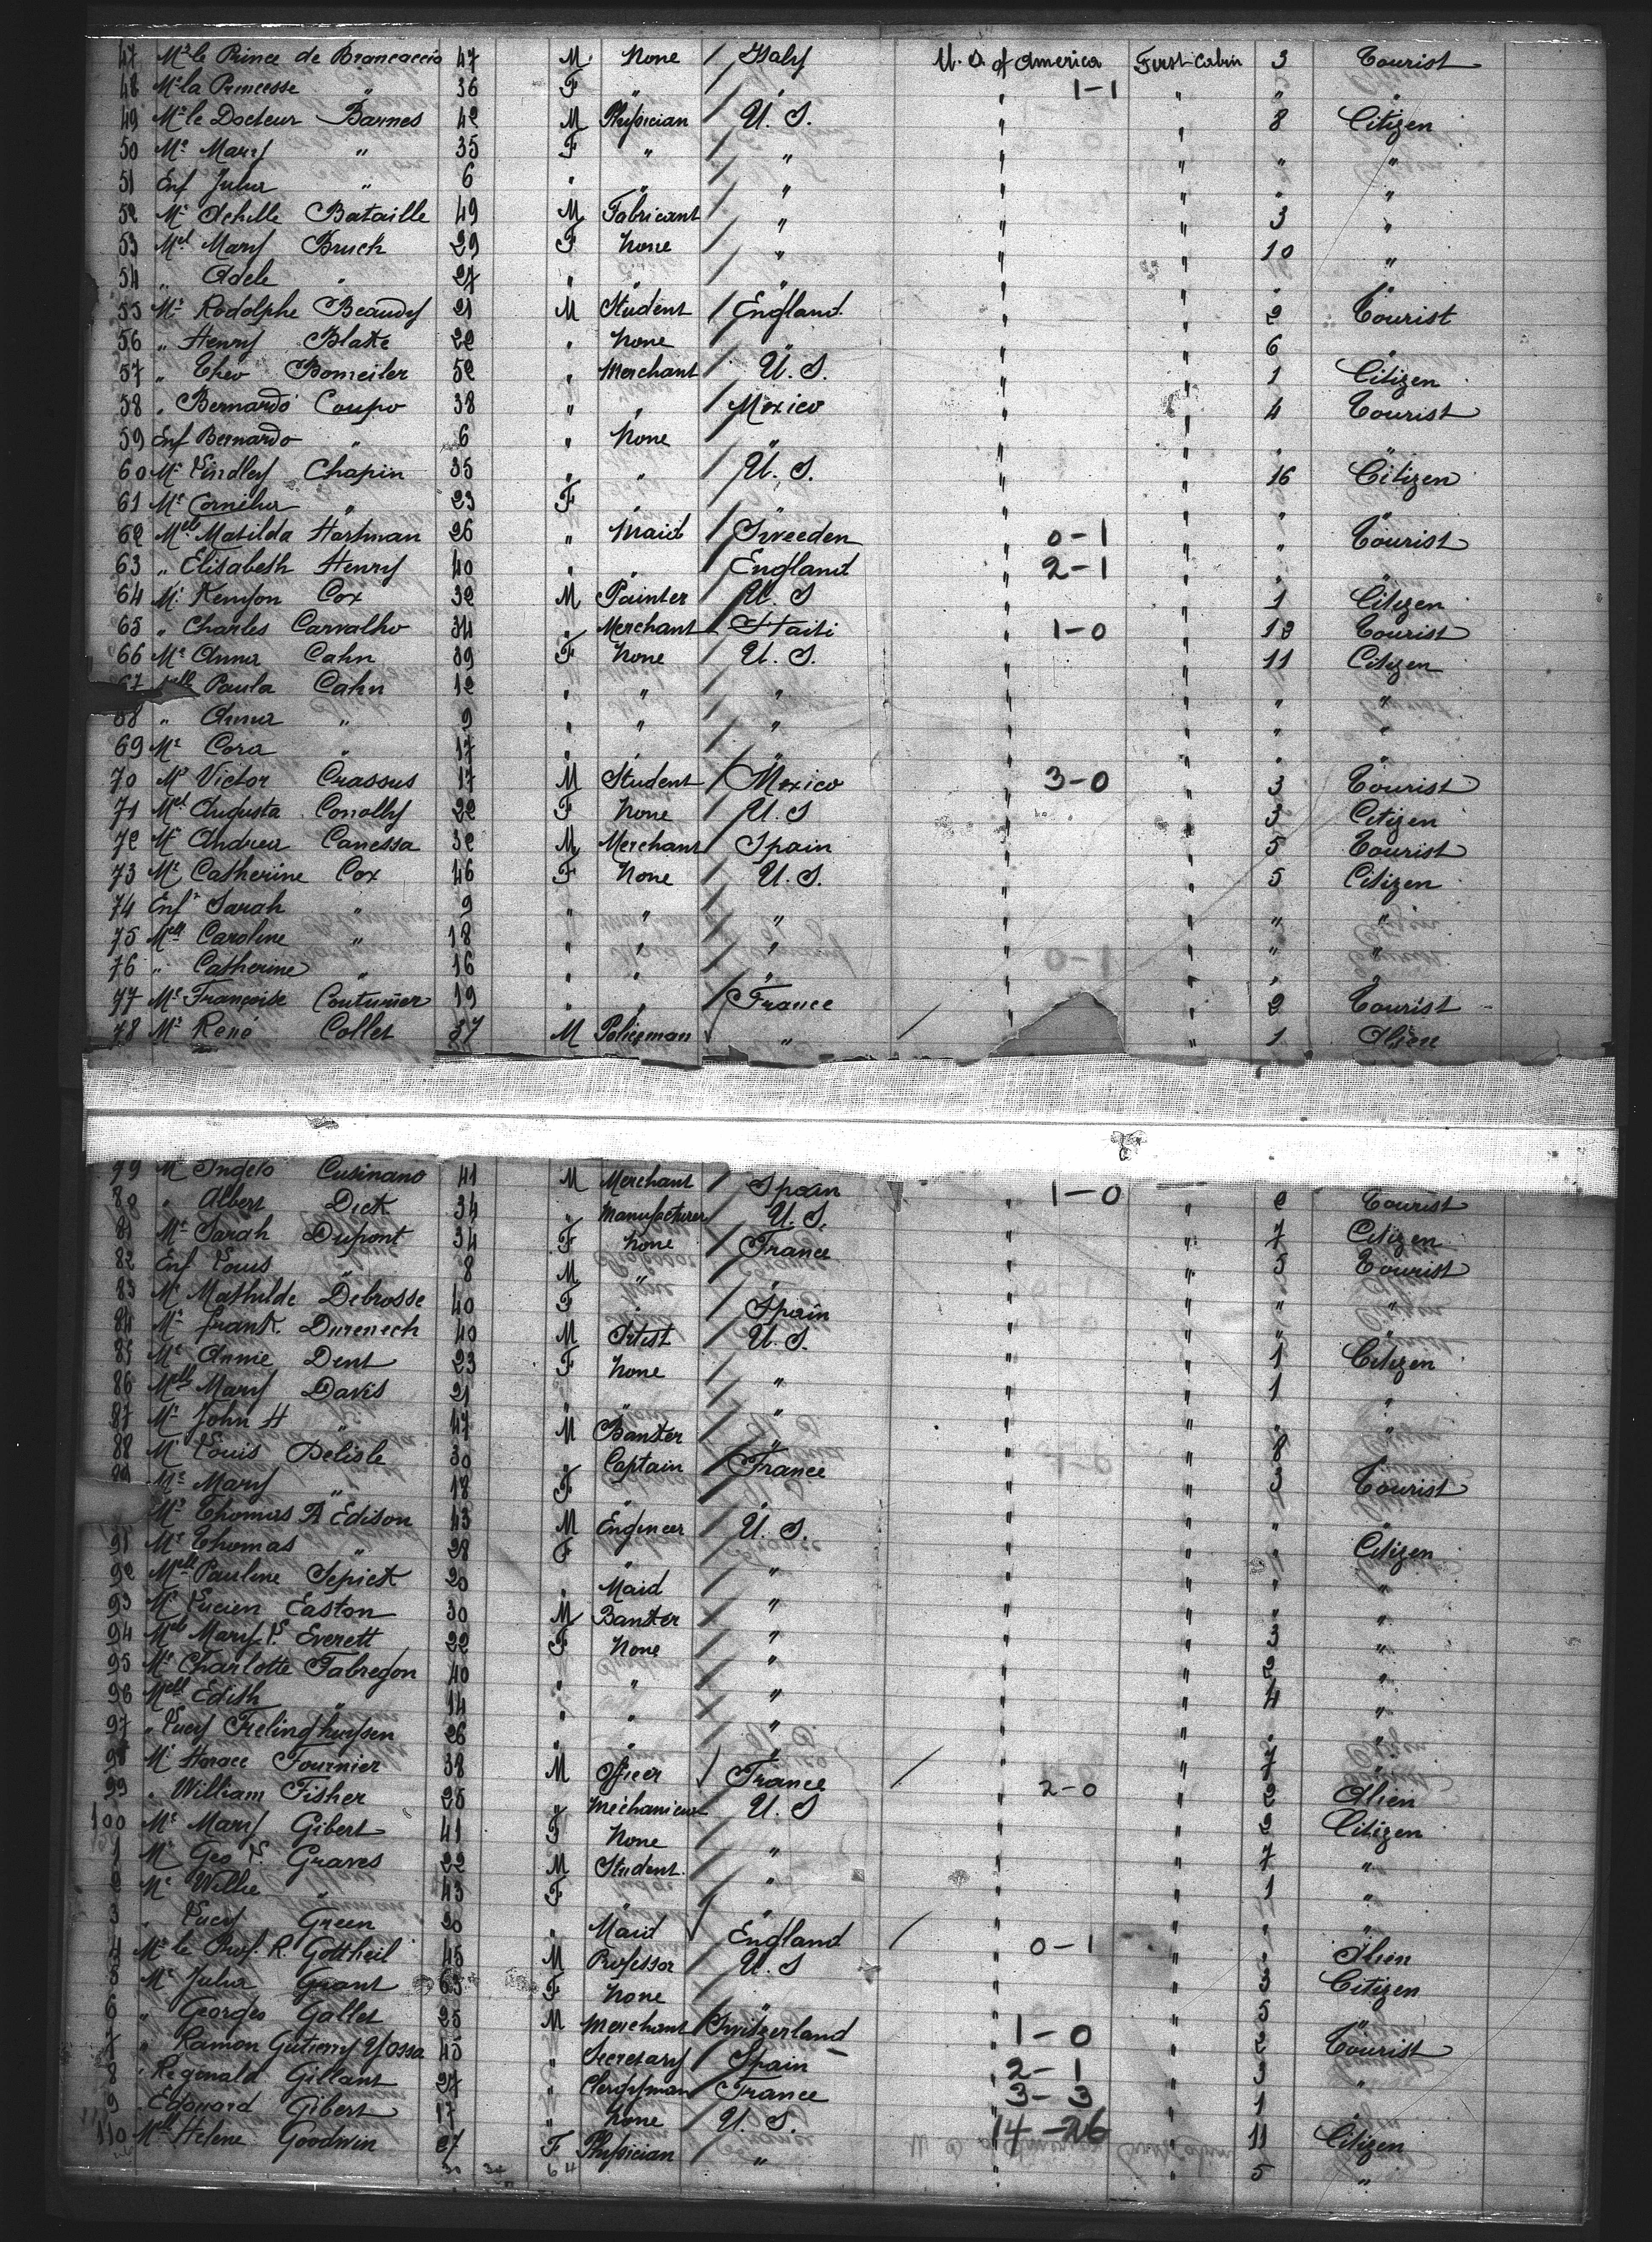 47 Mr le Prince de Brancaccio 47 M None / Italy U. S. of America First Cabin 3 Tourist
48 Me la Princesse " 36 F " / " " 1-1 " " "
49 Mr le Docteur Barnes 42 M Physician / U. S. " " 8 Citizen
50 Me Mary " 35 F " / " " " " "
51 Enf Julia " 6 " " / " " " " "
52 Mr Achille Bataille 49 M Fabricant / " " " 3 "
53 Mel Mary Bruch 29 F None / " " " 10 "
54 " Adele " 27 " " / " " " " "
55 Mr Rodolphe Beaudy 21 M Student / England " " 2 Tourist
56 " Henry Blake 22 " None / " " " 6 "
57 " Théo Bomeiler 52 " Merchant / U. S. " " 1 Citizen
58 " Bernardo Coupo 38 " " / Mexico " " 4 Tourist
59 Enf Bernardo " 6 " None / " " " " "
60 Mr Lindley Chapin 35 " " / U. S. " " 16 Citizen
61 Me Cornélia " 23 F " / " " " " "
62 Mell Matilda Hartman 26 " Maid / Sweeden " 0-1 " " Tourist
63 " Elisabeth Henry 40 " " / England " 2-1 " " "
64 Mr Kenyon Cox 32 M Painter / U. S " " 1 Citizen
65 " Charles Carvalho 34 " Merchant / Haiti " 1-0 " 12 Tourist
66 Me Anna Cahn 39 F None / U. S. " " 11 Citizen
67 Mell Paula Cahn 12 " " / " " " " "
68 " Anna " 9 " " / " " " " "
69 Me Cora " 17 " " / " " " " "
70 Mr Victor Crassus 17 M Student / Mexico " 3-0 " 3 Tourist
71 Mel Augusta Conolly 22 F None / U. S " " 3 Citizen
72 Mr Andrea Canessa 32 M Merchant / Spain " " 5 Tourist
73 Me Catherine Cox 46 F None / U. S. " " 5 Citizen
74 Enft Sarah " 9 " " / " " " " "
75 Mell Caroline " 18 " " / " " " " "
76 " Catherine " 16 " " / " " " " "
77 Me Françoise Couturier 19 " " / France " " 2 Tourist
78 Mr René Collet 37 M Policeman √ " / " " 1 Alien
79 Mr Angelo Cusinano 41 M Merchant / Spain 1-0 " 2 Tourist
88 " Albert Dick 34 " Manufacturer / U. S. " " 7 Citizen
81 Me Sarah Dupont 34 F None / France " " 5 Tourist
82 Enf Louis " 8 M " / " " " " "
83 Me Mathilde Debrosse 40 F " / Spain " " " "
84 Mr Frank Durenech 40 M Artist / U. S. " " 1 Citizen
85 Me Annie Dent 23 F None / " " " 1 "
86 Mell Mary Davis 21 " " / " " " " "
87 Mr John H " 47 M Banker / " " " 8 "
88 Mr Louis Delisle 30 " Captain / France " " 3 Tourist
89 Me Mary " 18 F " / " " " " "
Mr Thomas A Edison 43 M Engineer / U. S. " " " Citizen
91 Me Thomas " 28 F " / " " " " "
92 Mell Pauline Sepick 20 " Maid / " " " " "
93 Mr Lucien Easton 30 M Banker / " " " 3 "
94 Mel Mary L. Everett 22 F None / " " " 2 "
95 Me Charlotte Fabregon 40 " " / " " " 4 "
96 Mell Edith " 14 " " / " " " " "
97 " Lucy Frelinghuysen 26 " " / " " " 7 "
98 Mr Horace Fournier 38 M Officer √ France / " 2-0 " 2 Alien
99 " William Fisher 25 " Mechanicien / U. S " " 2 Citizen
100 Me Mary Gibert 41 F None / " " " 7 "
1 Mr Geo L. Graves 22 M Student / " " " 1 "
2 Me Willie " 43 F " / " " " " "
3 " Lucy Green 20 " Maid √ England / " 0-1 " " Alien
4 Mr le Prof. R. Gottheil 45 M Professor / U. S " " 3 Citizen
5 Me Julia Grant 63 F None / " " " 5 "
6 " Georges Gallet 25 M Merchant / Switzerland " 1-0 " 2 Tourist
7 " Ramon Gutierry Yossa 45 " Secretary / Spain " 2-1 " 3 "
8 " Reginald Gillant 27 " Clergyman / France " 3-3 " 1 "
9 " Edouard Gibert 17 " None / U. S. " 14-26 " 11 Citizen
110 Mell Helene Goodwin 27 F Physician / " " " 5 "